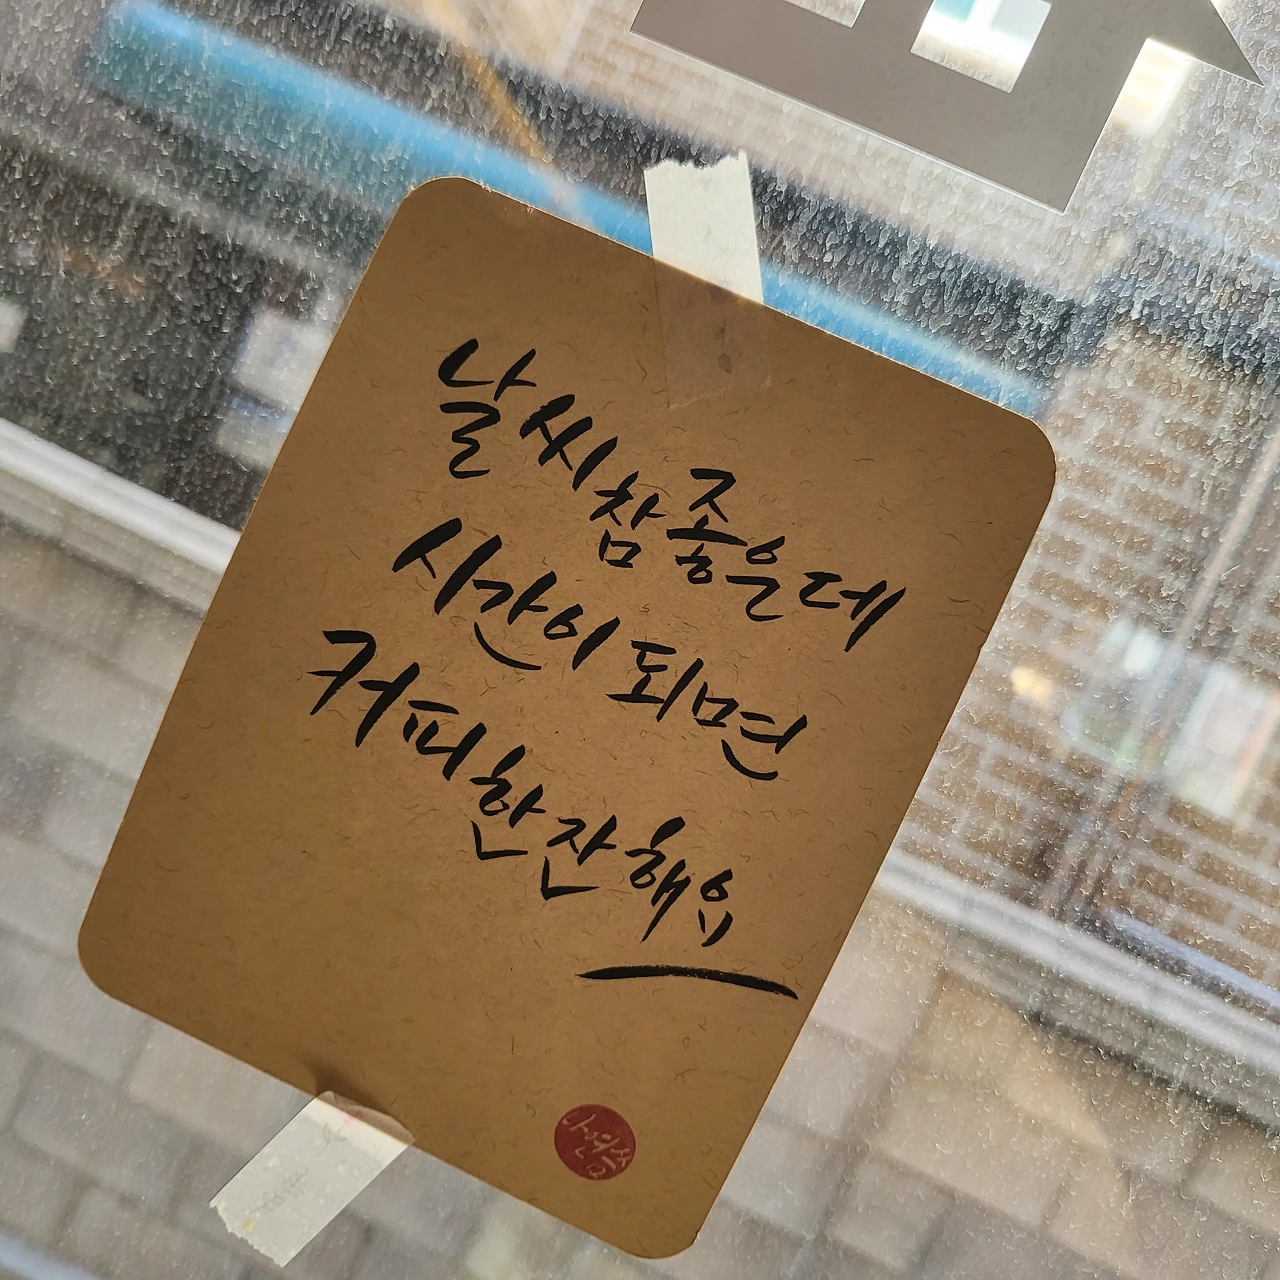 날씨 참 좋은데
시간이 되면
커피 한 잔 해요